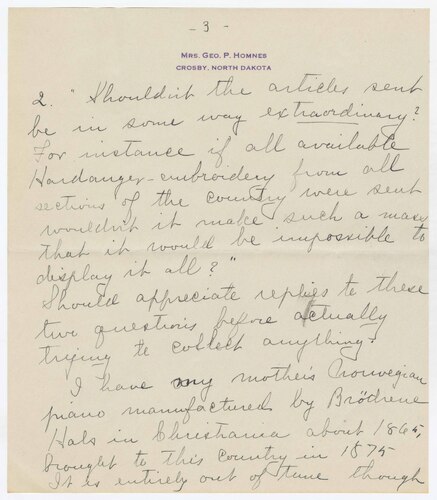 - 3 -
MRS. GEO. P. HOMNES
CROSBY, NORTH DAKOTA
2. "Shouldn't the articles sent
be in some way extraordinary?
For instance if all available
Hardanger-embroidery from all
sections of the country were sent
wouldn't it make such a mass
that it would be impossible to
display it all?"
Should appreciate replies to these
two questions before actually
trying to collect anything.
I have my mother's Norwegian
piano manufactured by Brödrene
Hals in Christiania about 1865,
brought to this country in 1875
It is entirely out of tune though